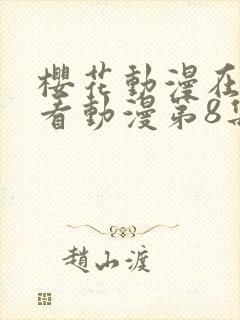 櫻花動漫在
看動漫第8集
趙山渡